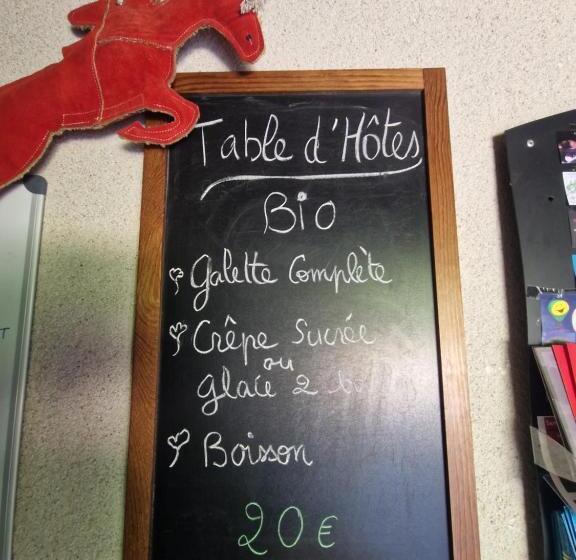 Table d'Hôtes
Bio
Galette Complète
Crêpe Sucrée
ou
Glace 2
Boisson
20 €
T